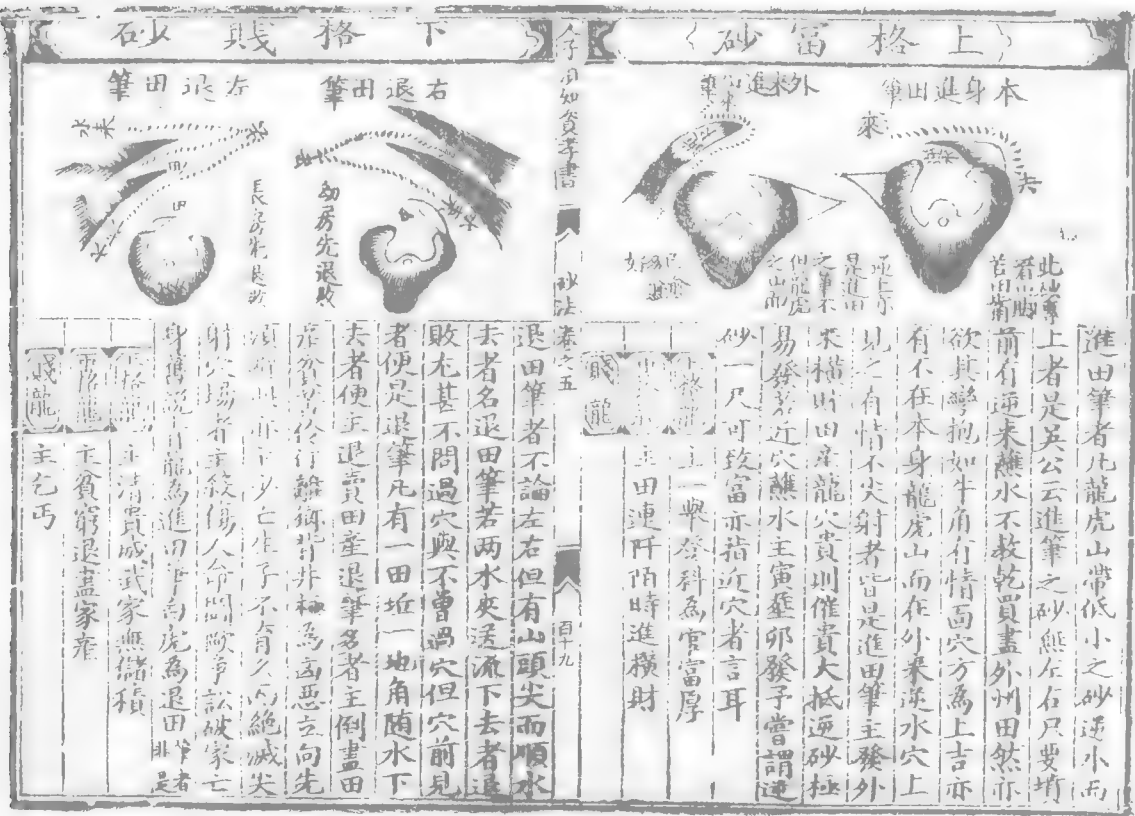 上格富砂
本身進田筆
外來進田筆
來
去
此砂要
苦田筆
是進田
之筆不
但龍虎
之山而
進田筆者凡龍虎山帶低小之砂逆水而
上者是英公云進筆之砂無左右只要墳
前有逆來蘸水不救乾買盡外州田然亦
欲其彎抱如牛角有情面穴方為上吉亦
有不在本身龍虎山而在外來逆水穴上
見之有情不尖射者皆是進田筆主發外
來橫財田產龍穴貴則催貴大抵逆砂極
易發若近穴蘸水主寅塟卯發予嘗謂逆
砂一尺可致富亦指近穴者言耳
主一舉登科為官富厚
主田連阡陌時進橫財
賤龍
人子須知資孝書
砂法卷之五
百十九
下格賤砂
右退田筆
左退田筆
幼房先退敗
長房先退敗
水來
退田筆者不論左右但有山頭尖而順水
去者名退田筆若两水夾送流下去者退
敗尤甚不問過穴與不曾過穴但穴前見
者便是退筆凡有一田坵一地角随水下
去者便主退賣田產退筆多者主倒盡田
產貧窮伶仃離鄉背井極為凶惡立向先
主少亡生子不育久而絕滅尖
射穴場者主殺傷人命鬪毆爭訟破家亡
身舊說有龍為進田筆而虎為退田筆者
非是
主清貴威武家無儲積
主貧窮退盡家產
賤龍
主乞丐